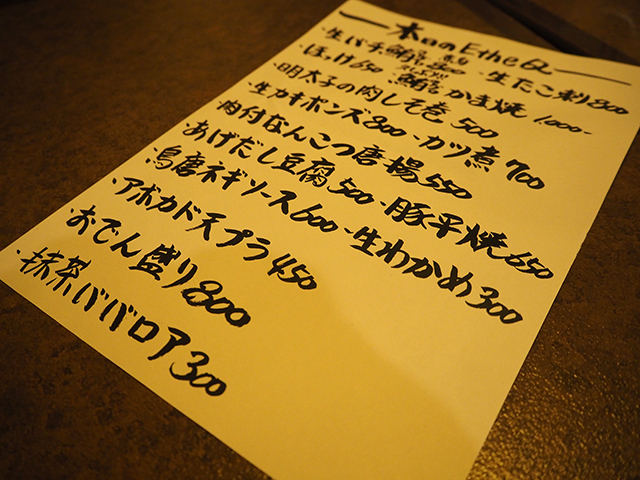 本日のEthe
・生バチ鮪 800 ・生たこ刺 800
・ほっけ 650 ・鮪 かま焼 1000-
・明太子の肉しそ巻 500
・生カキポンズ 800 ・カツ煮 700
・肉付なんこつ唐揚 550
・あげだし豆腐 500 ・豚平焼 650
・鳥唐ネギソース 600 ・生わかめ 300
・アボカド天プラ 450
・おでん盛り 800
・抹茶ババロア 300